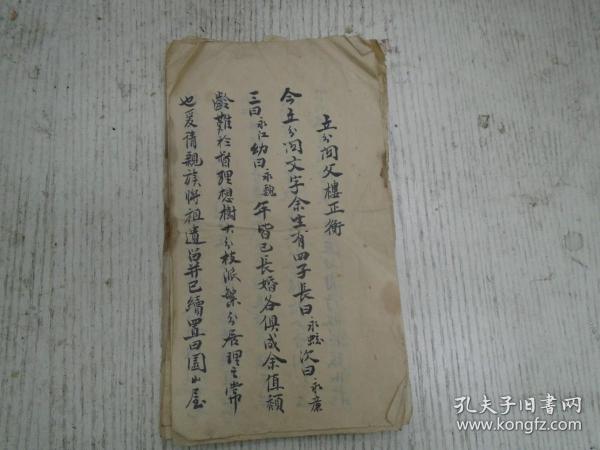 立分阄父楼正衡
今立分阄文字余生有四子長曰永 次曰永廣
三曰永江幼曰永魏年皆已長婚各俱成余值頹
齡難於督理想樹大分枝派繁分居理之常
也爰请親族將祖遗苗并已續置田園山屋
孔夫子旧书网
www.kongfz.com